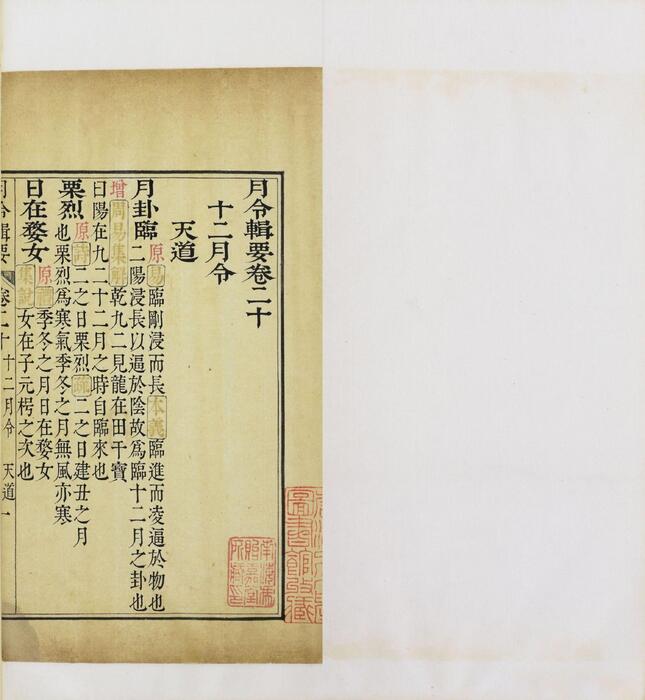 月令輯要卷二十
十二月令
天道
月卦臨 原易臨剛浸而長本義臨進而凌逼於物也
二陽浸長以逼於陰故爲臨十二月之卦也
增周易集解乾九二見龍在田干寶
曰陽在九二十二月之時自臨來也
栗烈 原詩二之日栗烈疏二之日建丑之月
也栗烈爲寒氣季冬之月無風亦寒
日在婺女 原禮季冬之月日在婺女
集說女在子元枵之次也
月令輯要 卷二十 十二月令 天道 一